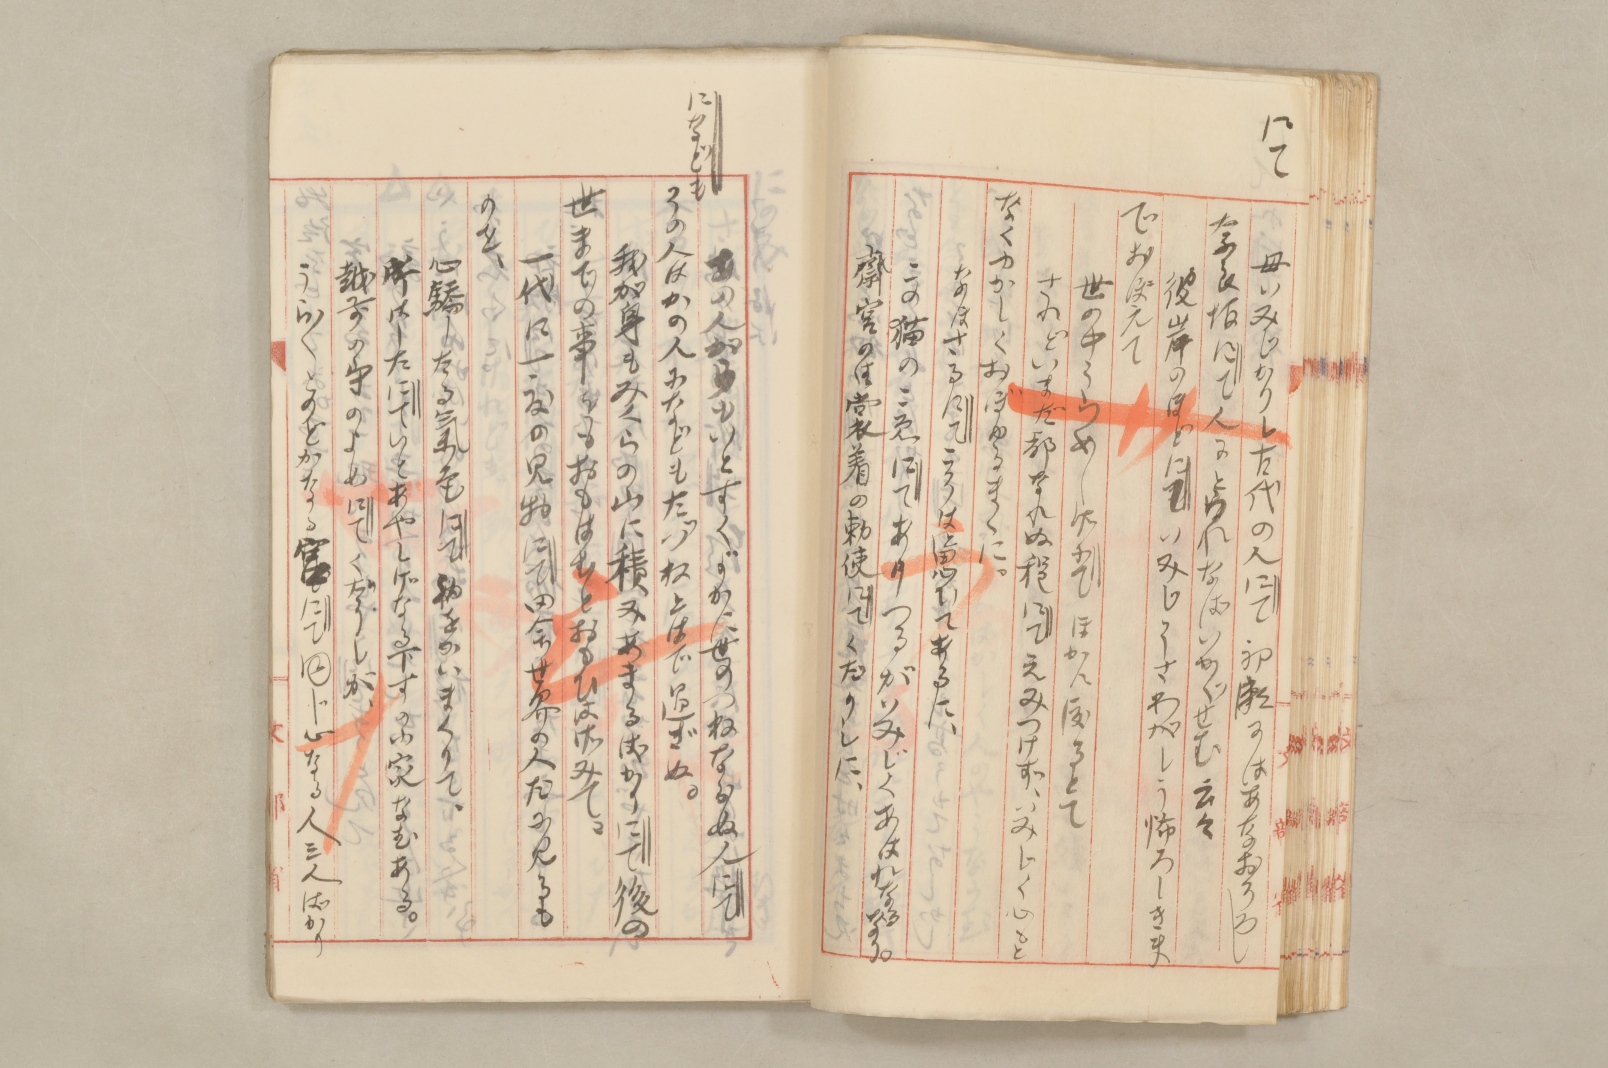 にて
母いみじかりし古代の人にて初瀬にはあなおそろし
奈良坂にて人にとられなばいかゞせむ云々
彼岸のほどにていみじうさわがしう怖ろしきま
でおぼえて
世の中うらめし
されどいまだ都なれぬ程にてえみつけず、いみじく心もと
なくゆかしくおぼゆるまゝに。
なほさるにてこそは思ひてあるに、
この猫のこゑにてありつるがいみじくあはれなるなり。
斎宮の御裳着の勅使にてくだりしに、
になども
この人はいとすくよかに世のつねならぬ人にて
その人はかの人になどもたづねとはで過ぎぬ。
我が身もみくらの山に積みあまるばかりにて後の
世までの事をもおもはむとおもひはげみて。
一代に一度の見物にて田舎世界の人だに見るも
のを、
心驕したる氣色にて物をだにいはまくりて。
所はしたにていとあやしげなる下すの小家なむある。
越前の守のよめにてくだりしが、
うらうらとのどかなる宮にて同じ心なる人三人ばかり
文部省